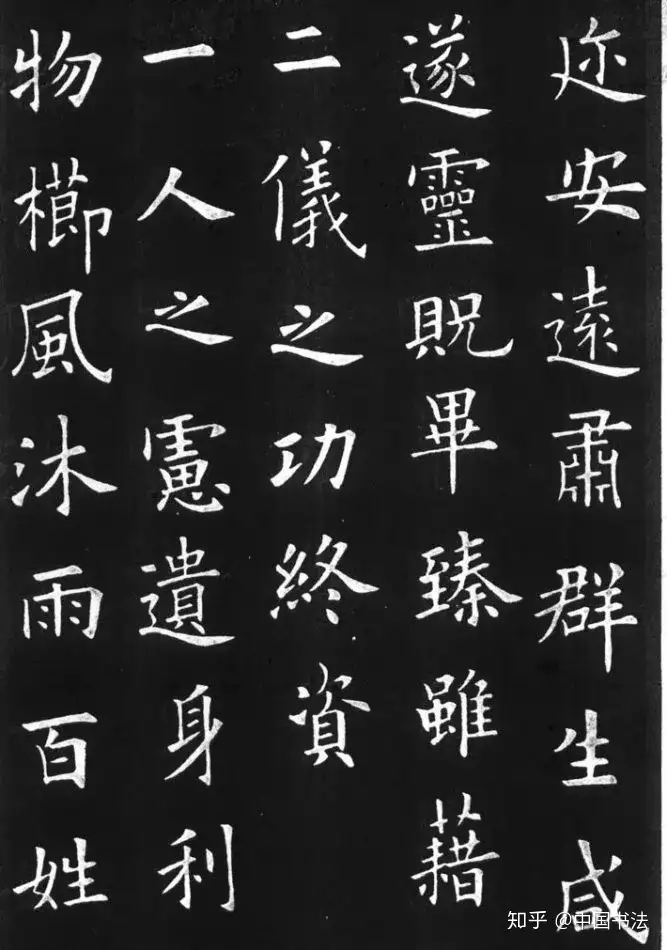 迩安遠肅群生咸
遂靈貺畢臻雖藉
二儀之功終資
一人之慮遺身利
物櫛風沐雨百姓
知乎 @中国书法